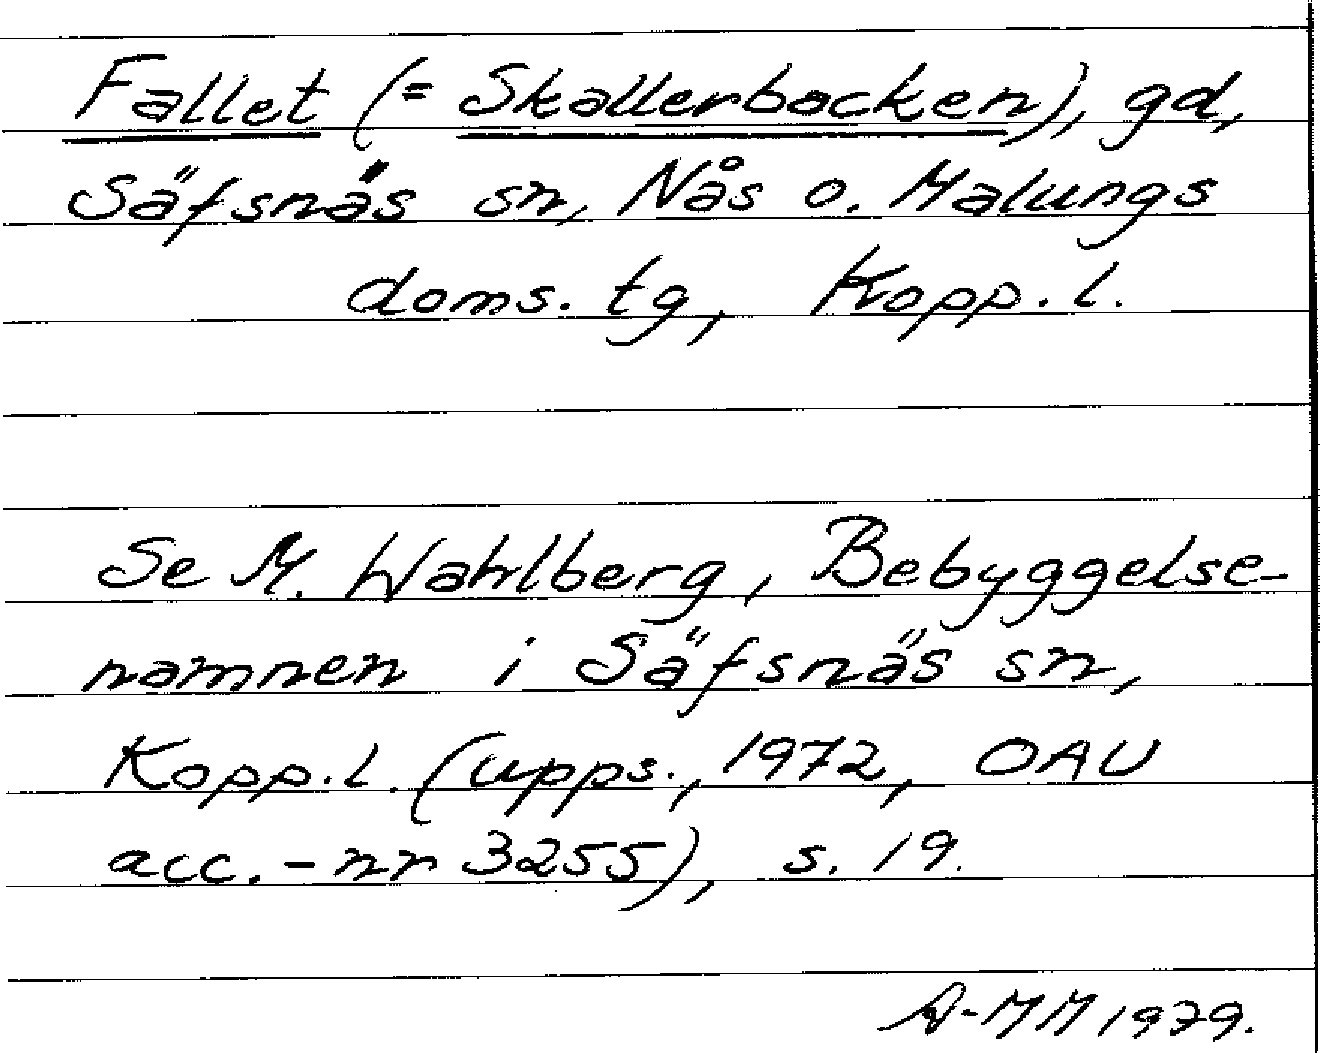 Fallet (= Skallerbacken), gd,
Säfsnäs sn, Nås o. Malungs
doms. tg, Kopp. l.
Se M. Wahlberg, Bebyggelse-
namnen i Säfsnäs sn,
Kopp. l. (Upps., 1972, OAU
acc.-nr 3255), s. 19.
A-MM 1979.